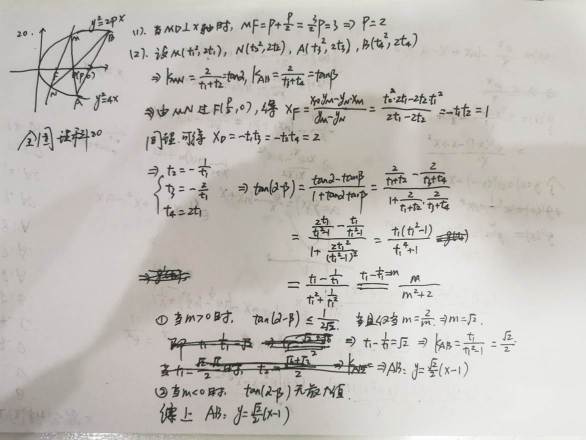 20.
y²=2px
M
B
F
D(p,0)
N
A
y²=4x
(1). 当MD⊥x轴时, MF=p+p/2=3/2p=3 ⇒ p=2
(2). 设M(t₁²,2t₁), N(t₂²,2t₂), A(t₃²,2t₃), B(t₄²,2t₄)
⇒ kMN=2/(t₁+t₂)=tanα, kAB=2/(t₃+t₄)=tanβ
⇒由MN过F(p/2,0), 得 XF=(xMyN-yMxN)/(yM-yN)=(t₂²·2t₁-2t₂t₁²)/(2t₁-2t₂)=-t₁t₂=1
同理可得 XD=-t₁t₃=-t₂t₄=2
⇒ { t₂=-1/t₁
t₃=-2/t₁
t₄=2t₁
⇒ tan(α-β)=(tanα-tanβ)/(1+tanαtanβ)=(2/(t₁+t₂)-2/(t₃+t₄))/(1+2/(t₁+t₂)·2/(t₃+t₄))
=(2t₁/(t₁²-1)-t₁/(t₁²-1))/(1+2t₁²/(t₁²-1)²)=t₁(t₁²-1)/(t₁⁴+1)
=(t₁-1/t₁)/(t₁²+1/t₁²) t₁-1/t₁=m m/(m²+2)
① 当m>0时, tan(α-β)≤1/(2√2) 当且仅当m=2/m ⇒m=√2
⇒ t₁-1/t₁=√2 ⇒ kAB=t₁/(t₁²-1)=√2/2
⇒AB: y=√2/2(x-1)
② 当m<0时, tan(α-β)无最大值
综上 AB: y=√2/2(x-1)